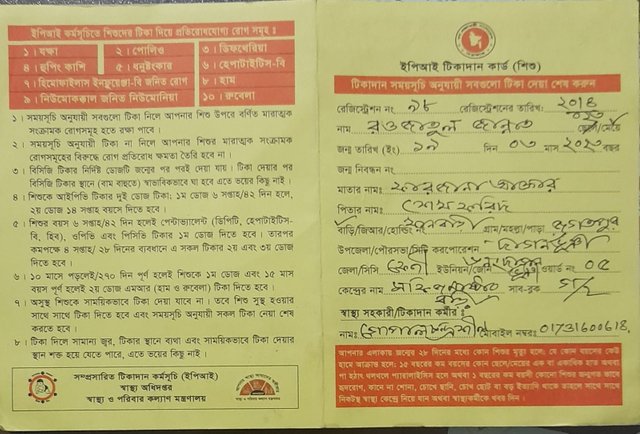 ইপিআই কর্মসূচিতে শিশুদের টিকা দিয়ে প্রতিরোধযোগ্য রোগ সমূহ ঃ
১। যক্ষা
২। পোলিও
৩। ডিফথেরিয়া
৪। হুপিং কাশি
৫। ধনুষ্টংকার
৬। হেপাটাইটিস-বি
৭। হিমোফাইলাস ইনফ্লুয়েঞ্জা-বি জনিত রোগ
৮। হাম
৯। নিউমোকক্কাল জনিত নিউমোনিয়া
১০। রুবেলা
১। সময়সূচি অনুযায়ী সবগুলো টিকা নিলে আপনার শিশু উপরে বর্ণিত মারাত্মক
সংক্রামক রোগসমূহ হতে রক্ষা পাবে।
২। সময়সূচি অনুযায়ী টিকা না নিলে আপনার শিশুর মারাত্মক সংক্রামক
রোগসমূহের বিরুদ্ধে রোগ প্রতিরোধ ক্ষমতা তৈরি হবে না।
৩। বিসিজি টিকার নির্দিষ্ট ডোজটি জন্মের পর পরই দেয়া যায়। টিকা দেয়ার পর
বিসিজি টিকার স্থানে (বাম বাহুতে) স্বাভাবিকভাবে ঘা হবে এতে ভয়ের কিছু নাই।
৪। শিশুকে আইপিভি টিকার দুই ডোজ টিকা: ১ম ডোজ ৬ সপ্তাহ/৪২ দিন হলে,
২য় ডোজ ১৪ সপ্তাহ বয়সে দিতে হবে।
৫। শিশুর বয়স ৬ সপ্তাহ/৪২ দিন হলেই পেন্টাভ্যালেন্ট (ডিপিটি, হেপাটাইটিস-
বি, হিব), ওপিভি এবং পিসিভি টিকার ১ম ডোজ দিতে হবে। তারপর
কমপক্ষে ৪ সপ্তাহ/ ২৮ দিনের ব্যবধানে এ সকল টিকার ২য় এবং ৩য় ডোজ
দিতে হবে।
৬। ১০ মাসে পড়লেই/২৭০ দিন পূর্ণ হলেই শিশুকে ১ম ডোজ এবং ১৫ মাস
বয়স পূর্ণ হলেই ২য় ডোজ এমআর (হাম ও রুবেলা) টিকা দিতে হবে।
৭। অসুস্থ শিশুকে সাময়িকভাবে টিকা দেয়া যাবে না। তবে শিশু সুস্থ হওয়ার
সাথে সাথে টিকা দিতে হবে এবং সময়সূচি অনুযায়ী সকল টিকা নেয়া শেষ
করতে হবে।
৮। টিকা দিলে সামান্য জ্বর, টিকার স্থানে ব্যথা এবং সাময়িকভাবে টিকা দেয়ার
স্থান শক্ত হয়ে যেতে পারে, এতে ভয়ের কিছু নাই।
সম্প্রসারিত টিকাদান কর্মসূচি (ইপিআই)
স্বাস্থ্য অধিদপ্তর
স্বাস্থ্য ও পরিবার কল্যাণ মন্ত্রণালয়
ইপিআই টিকাদান কার্ড (শিশু)
টিকাদান সময়সূচি অনুযায়ী সবগুলো টিকা দেয়া শেষ করুন
রেজিস্ট্রেশন নং ৯৮ রেজিস্ট্রেশনের তারিখ:
নাম রওজাতুল জান্নাত ছেলে/মেয়ে
জন্ম তারিখ (ইং) ১৯ দিন ০৩ মাস ২০২৩ বছর
জন্ম নিবন্ধন নং
মাতার নামঃ ফারজানা আক্তার
পিতার নামঃ
বাড়ি/জিআর/হোল্ডিং গ্রাম/মহল্লা/পাড়া জগতপুর
উপজেলা/পৌরসভা/সিটি করপোরেশন দাগনভূঞা
জেলা/সিসি ফেনী ইউনিয়ন/জোন ওয়ার্ড নং ০৫
কেন্দ্রের নাম সাব-ব্লক
স্বাস্থ্য সহকারী/টিকাদান কর্মীর ঃ
নামঃ গোপাল চন্দ্র শীল মোবাইল নম্বরঃ 01731600618
আপনার এলাকায় জন্মের ২৮ দিনের মধ্যে কোন শিশুর মৃত্যু হলে; যে কোন বয়সের কেউ
হামে আক্রান্ত হলে; ১৫ বছরের কম বয়সের কোন ছেলে/মেয়ের এক বা একাধিক হাত অথবা
পা হঠাৎ থলথলে প্যারালাইসিস হলে অথবা ১ বছরের কম বয়সী কোনো শিশুর জন্মগত ভাবে
হৃদরোগ, কানে না শোনা, চোখে ছানি, চোখ ছোট বা বড় ইত্যাদি থাকে তাহলে সাথে সাথে
নিকটস্থ স্বাস্থ্য কেন্দ্রে নিয়ে যান অথবা স্বাস্থ্যকর্মীকে খবর দিন।